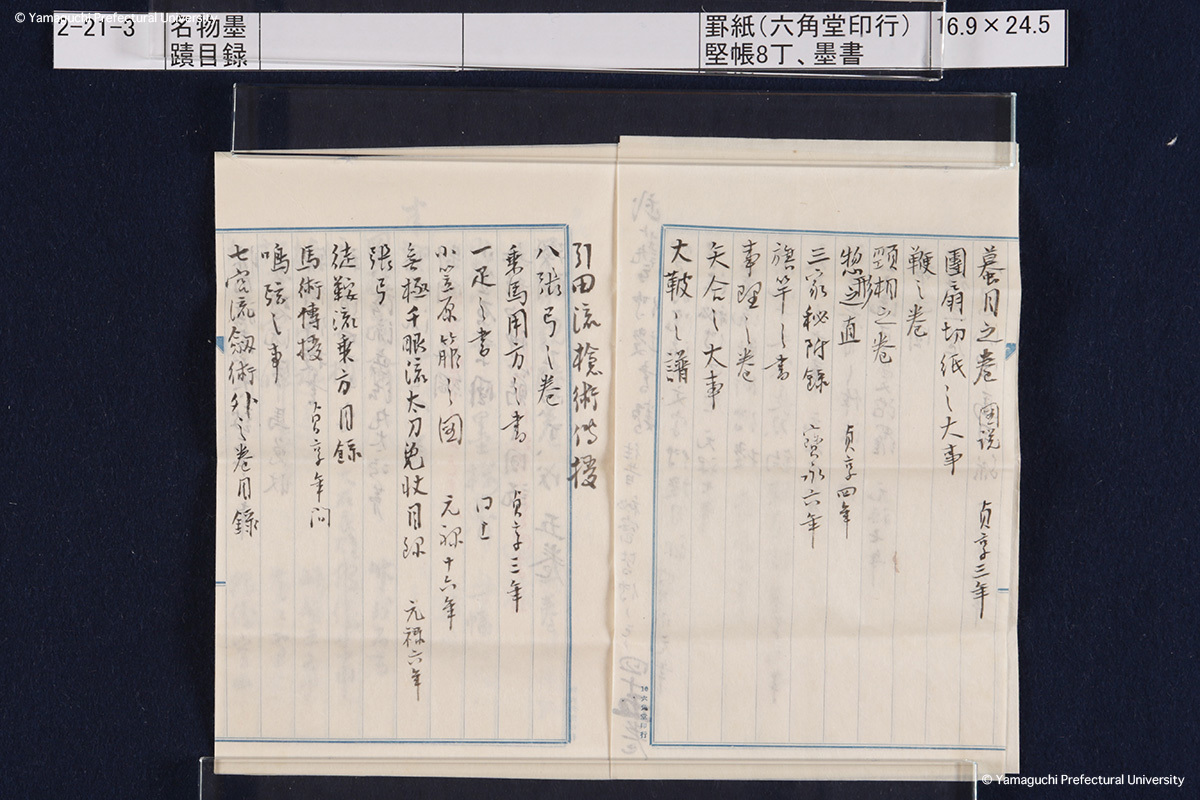 © Yamaguchi Prefectural University
2-21-3
名物墨
蹟目録
罫紙(六角堂印行)
堅帳8丁、墨書
16.9×24.5
蟇目之巻 図説 貞享三年
團扇切紙之大事
鞭之巻
頸相之巻
惣形之直 貞享四年
三家秘附録 寳永六年
旗竿之書
事理之巻
矢合之大事
大鞁之譜
六角堂印行
引田流槍術傳授
八張弓之巻
乗馬用方之書 貞享三年
一足之書 口上
小笠原簱之図 元禄十六年
無極千眼流太刀免状目録 元禄六年
張弓
徒鞍流乗方目録
馬術傳授 貞享年間
鳴弦之事
流劔術外之巻目録
© Yamaguchi Prefectural University